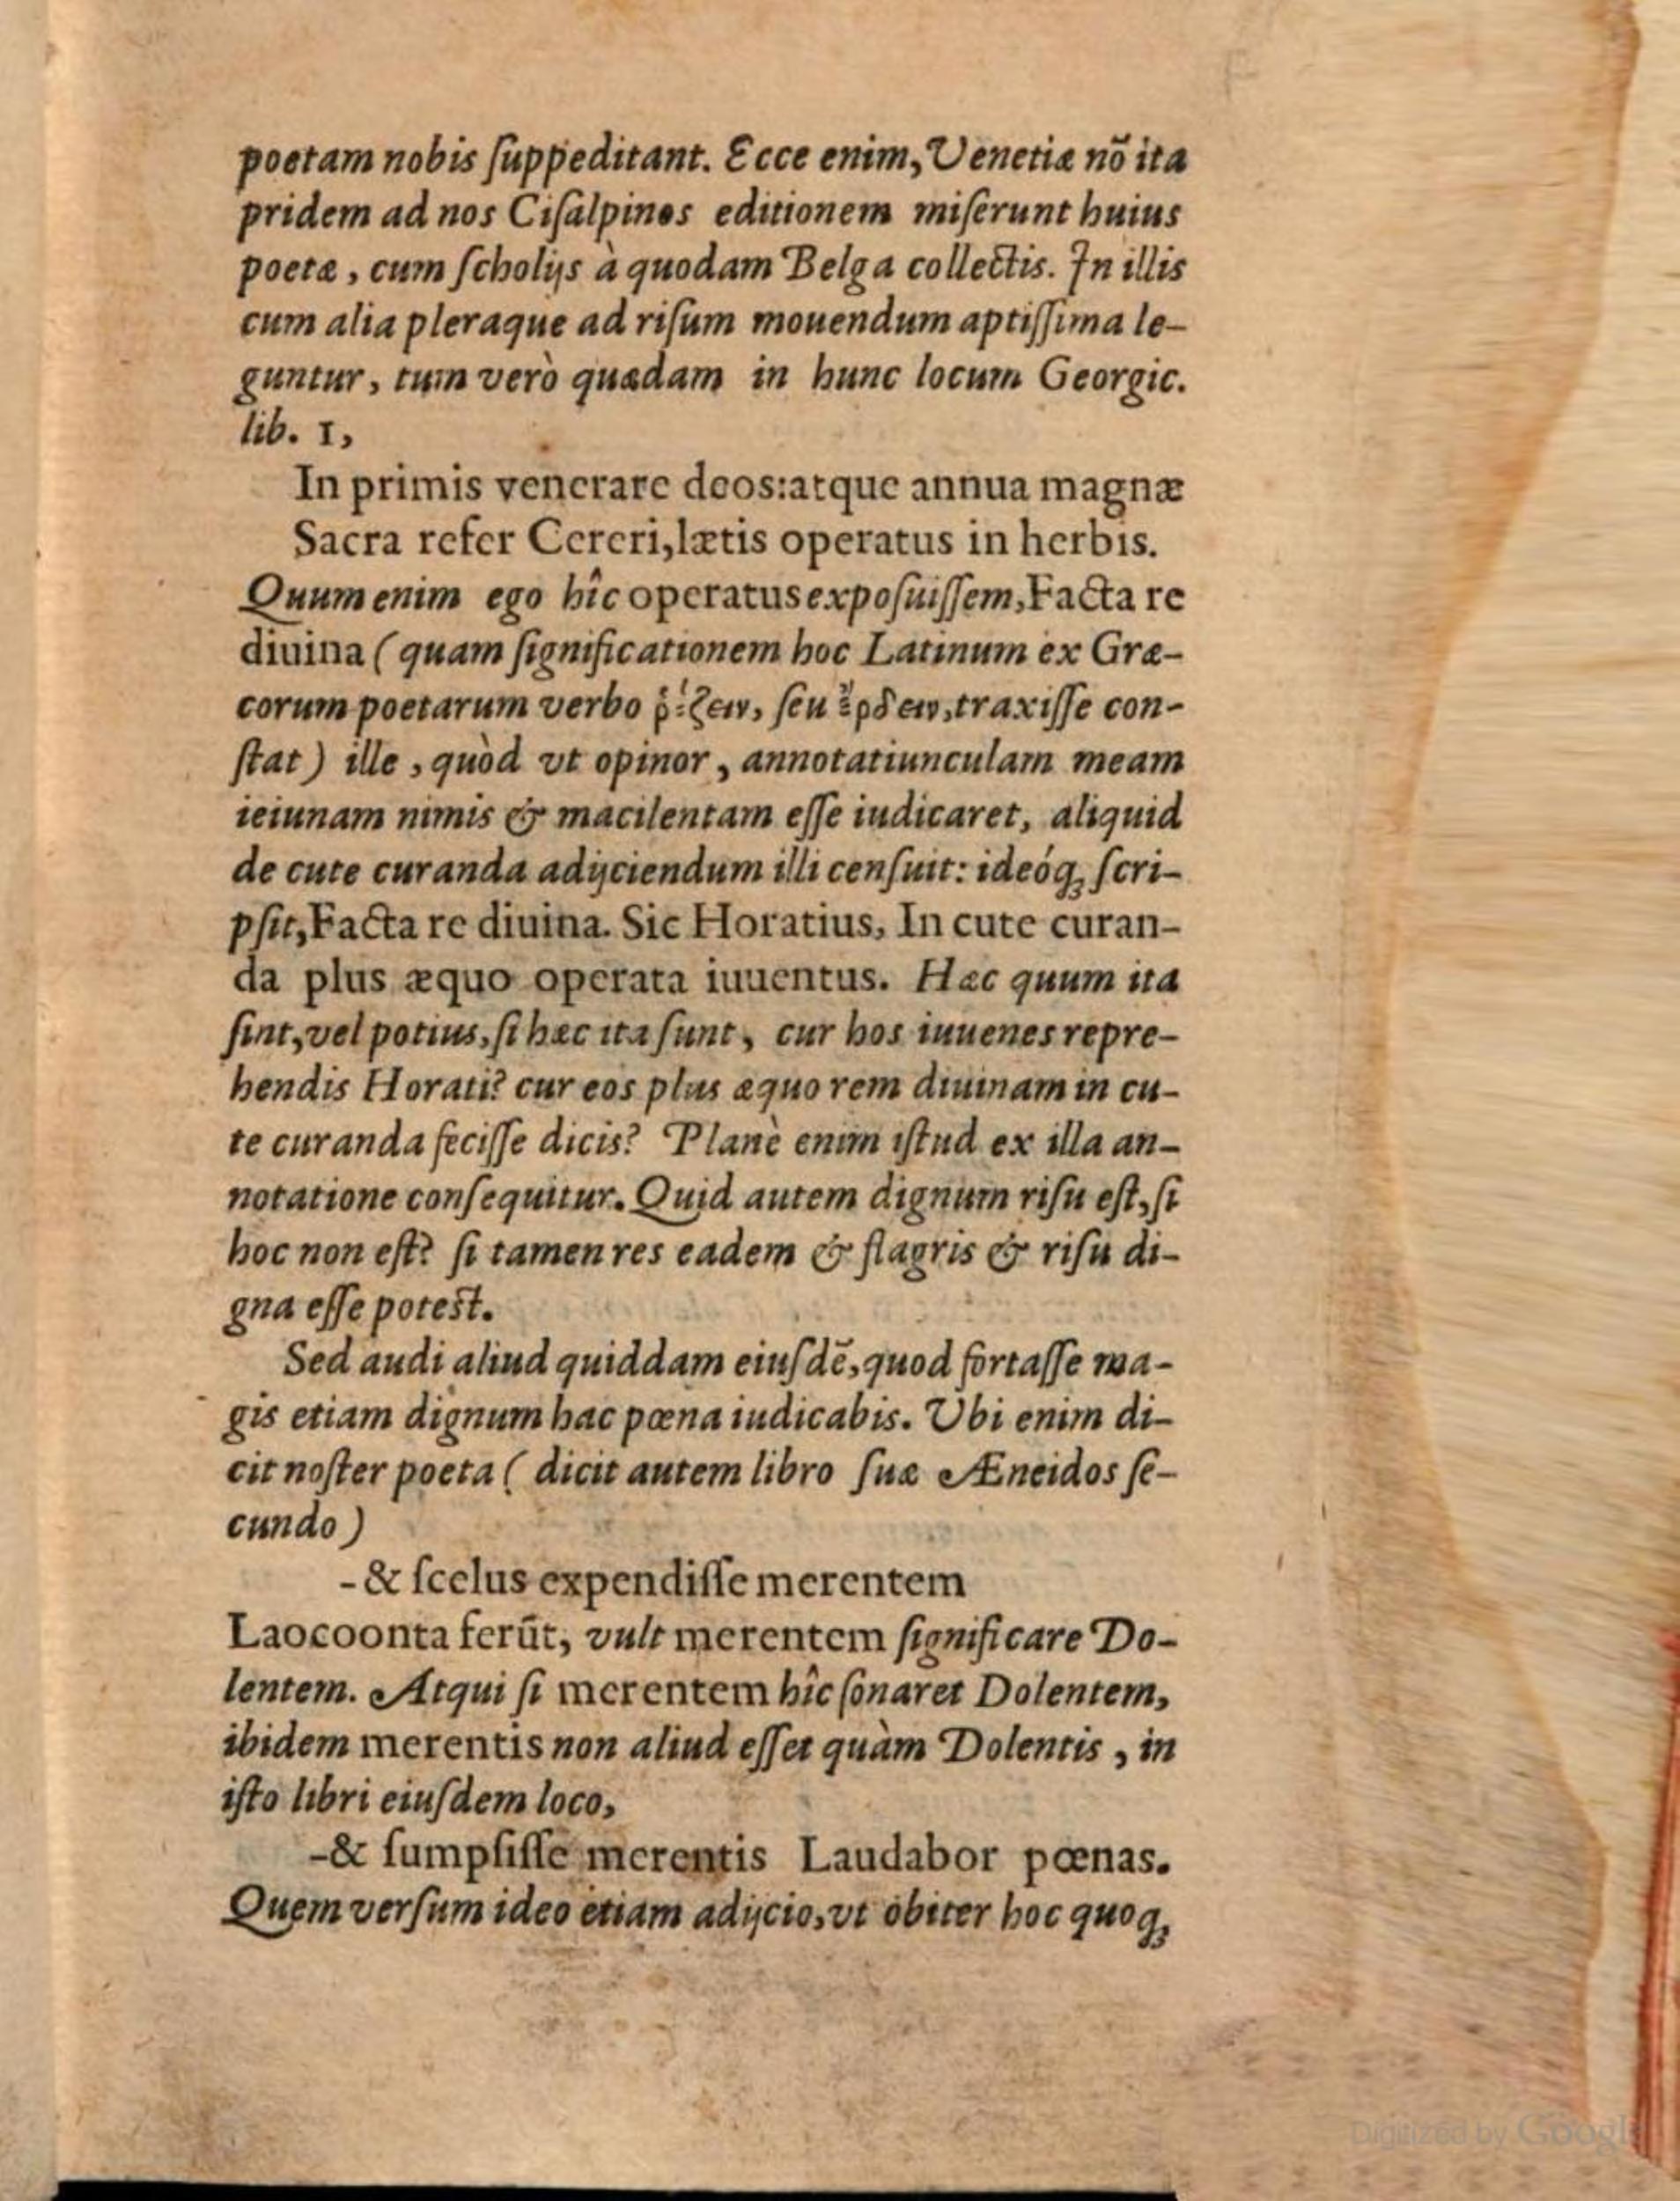 poetam nobis ſuppeditant. Ecce enim, Venetiæ nõ ita
pridem ad nos Ciſalpinos editionem miſerunt huius
poetæ, cum ſcholijs à quodam Belga collectis. In illis
cum alia pleraque ad riſum mouendum aptiſſima le-
guntur, tum verò quædam in hunc locum Georgic.
lib. 1,
In primis venerare deos: atque annua magnæ
Sacra refer Cereri, lætis operatus in herbis.
Quum enim ego hîc operatus expoſuiſſem, Facta re
diuina (quam ſignificationem hoc Latinum ex Græ-
corum poetarum verbo ῥέζειν, ſeu ἔρδειν, traxiſſe con-
ſtat) ille, quòd vt opinor, annotatiunculam meam
ieiunam nimis & macilentam eſſe iudicaret, aliquid
de cute curanda adijciendum illi cenſuit: ideóq; ſcri-
pſit, Facta re diuina. Sic Horatius, In cute curan-
da plus æquo operata iuuentus. Hæc quum ita
ſint, vel potius, ſi hæc ita ſunt, cur hos iuuenes repre-
hendis Horati? cur eos plus æquo rem diuinam in cu-
te curanda feciſſe dicis? Planè enim iſtud ex illa an-
notatione conſequitur. Quid autem dignum riſu eſt, ſi
hoc non eſt? ſi tamen res eadem & flagris & riſu di-
gna eſſe poteſt.
Sed audi aliud quiddam eiuſdẽ, quod fortaſſe ma-
gis etiam dignum hac pœna iudicabis. Vbi enim di-
cit noſter poeta (dicit autem libro ſuæ Æneidos ſe-
cundo)
- & ſcelus expendiſſe merentem
Laocoonta ferũt, vult merentem ſignificare Do-
lentem. Atqui ſi merentem hîc ſonaret Dolentem,
ibidem merentis non aliud eſſet quàm Dolentis, in
iſto libri eiuſdem loco,
-& ſumpſiſſe merentis Laudabor pœnas.
Quem verſum ideo etiam adijcio, vt obiter hoc quoq;
Digitized by Google